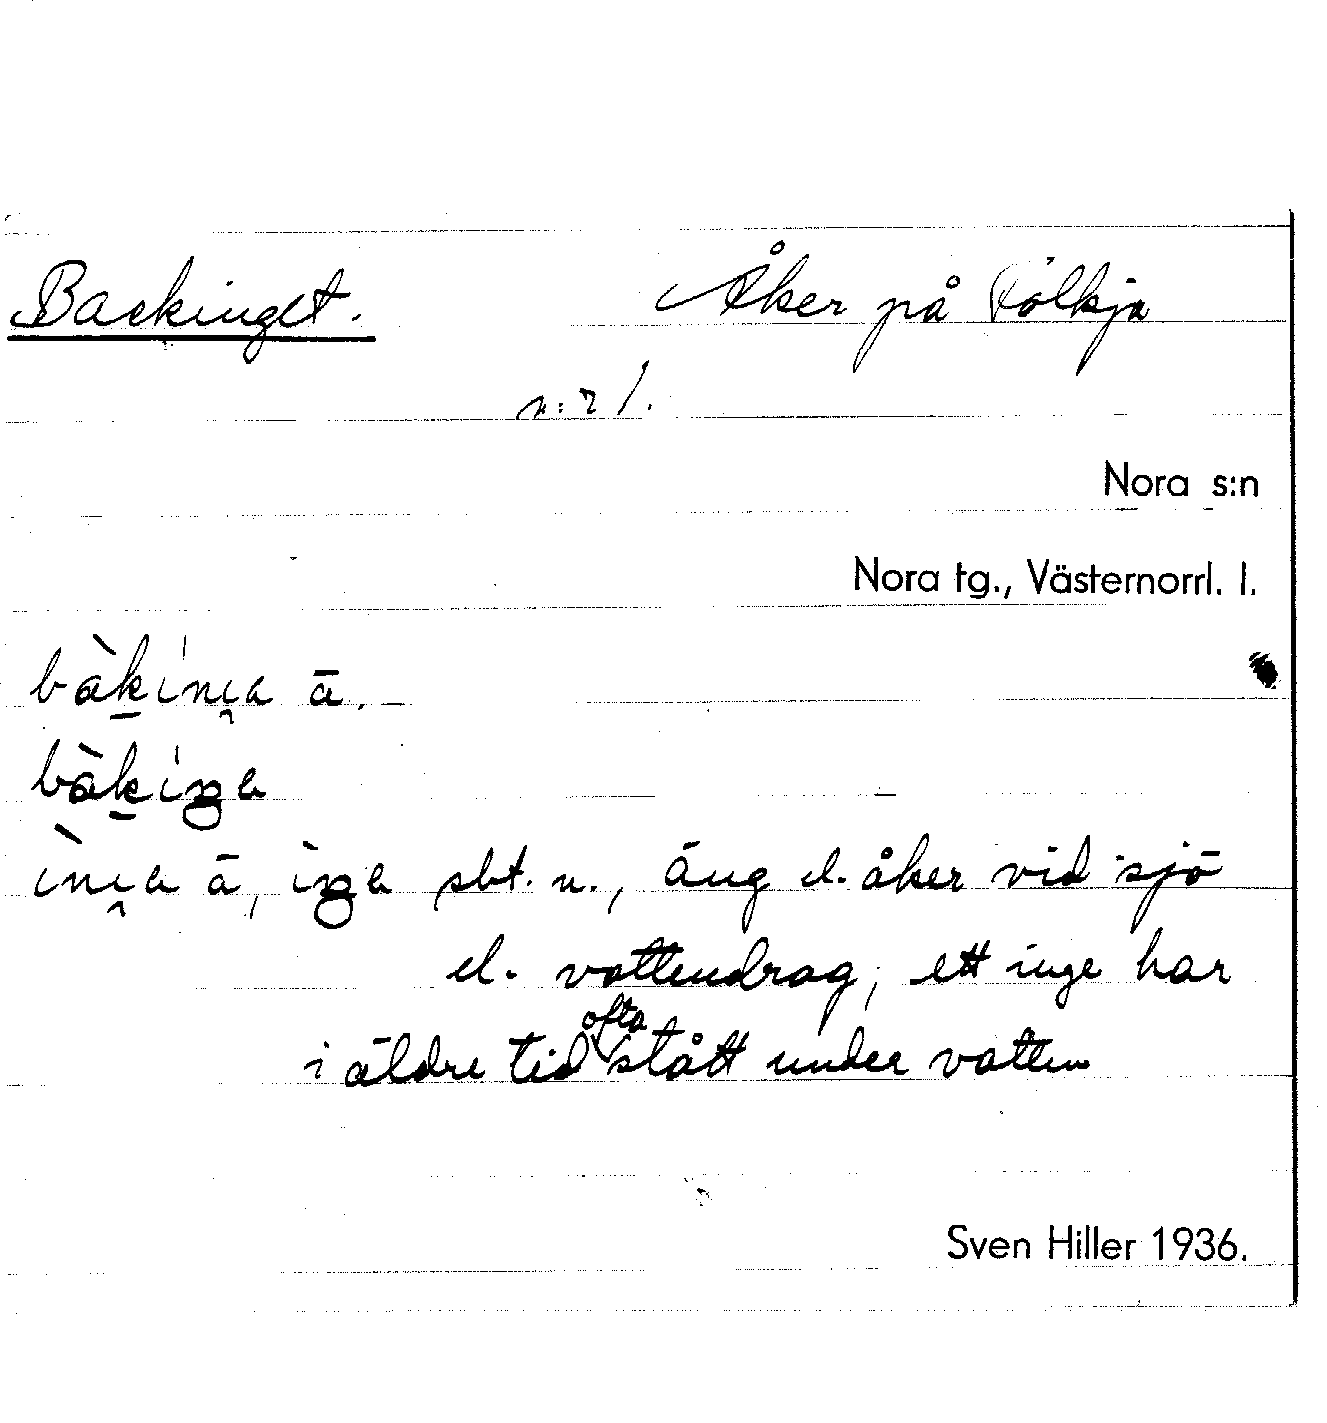 Backinget. Åker på Fölkja
n:r 1.
Nora s:n
Nora tg., Västernorrl. l.
ā.
ā, sbt. n., äng el. åker vid sjö
el. vattendrag; ett inge har
i äldre tid ofta stått under vatten
Sven Hiller 1936.